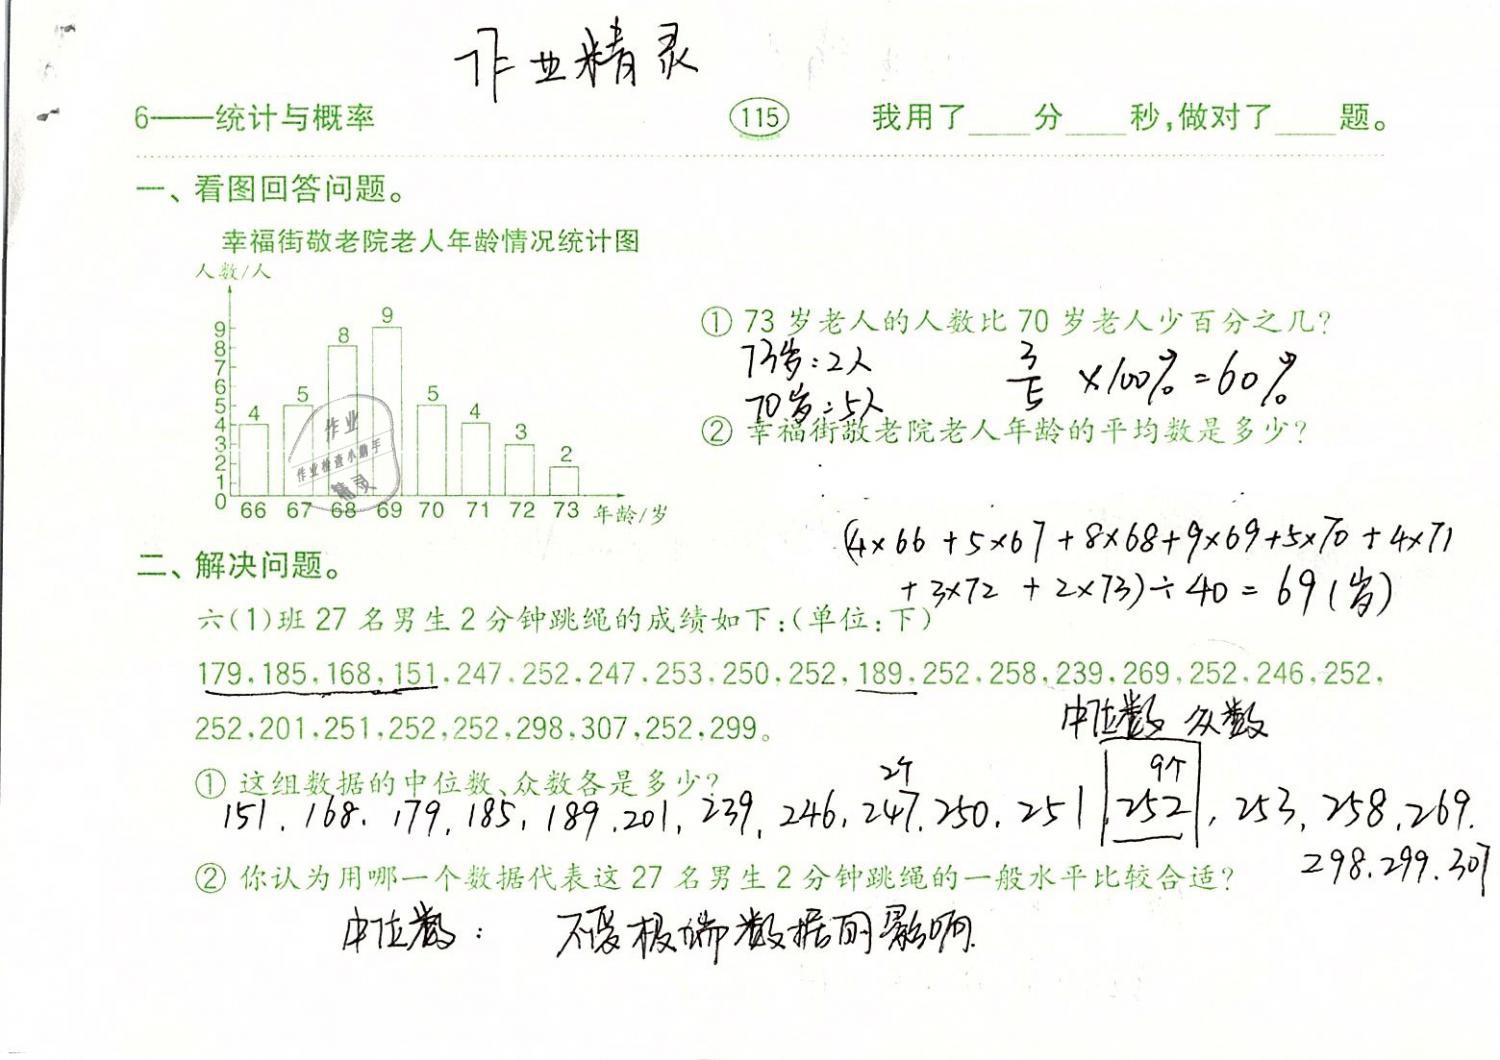 作业精灵
6——统计与概率 115 我用了____分____秒,做对了____题。
一、看图回答问题。
幸福街敬老院老人年龄情况统计图
人数/人
9
8
7
6
5
4
3
2
1
0
4 5 8 9 5 4 3 2
66 67 68 69 70 71 72 73 年龄/岁
作业
作业检查小助手
精灵
① 73岁老人的人数比70岁老人少百分之几?
73岁:2人 3/5 ×100%=60%
70岁:5人
② 幸福街敬老院老人年龄的平均数是多少?
(4×66+5×67+8×68+9×69+5×70+4×71
+3×72+2×73)÷40=69(岁)
二、解决问题。
六(1)班27名男生2分钟跳绳的成绩如下:(单位:下)
179,185,168,151,247,252,247,253,250,252,189,252,258,239,269,252,246,252,
252,201,251,252,252,298,307,252,299。
中位数 众数
① 这组数据的中位数、众数各是多少?
2个 9个
151,168,179,185,189,201,239,246,247,250,251,252,253,258,269.
298.299.307
② 你认为用哪一个数据代表这27名男生2分钟跳绳的一般水平比较合适?
中位数: 不受极端数据的影响.